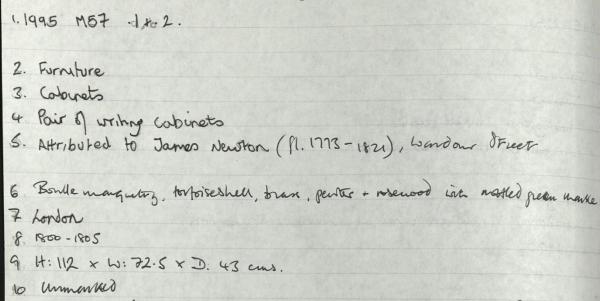 1. 1995 M57 1+2.
2. Furniture
3. Cabinets
4 Pair of writing cabinets
5. Attributed to James Newton (fl. 1773-1821), Wardour Street
6 Boulle marquetry, tortoiseshell, brass, pewter + rosewood with mottled green marble
7 London
8. 1800-1805
9 H: 112 x W: 72.5 x D. 43 cms.
10 Unmarked